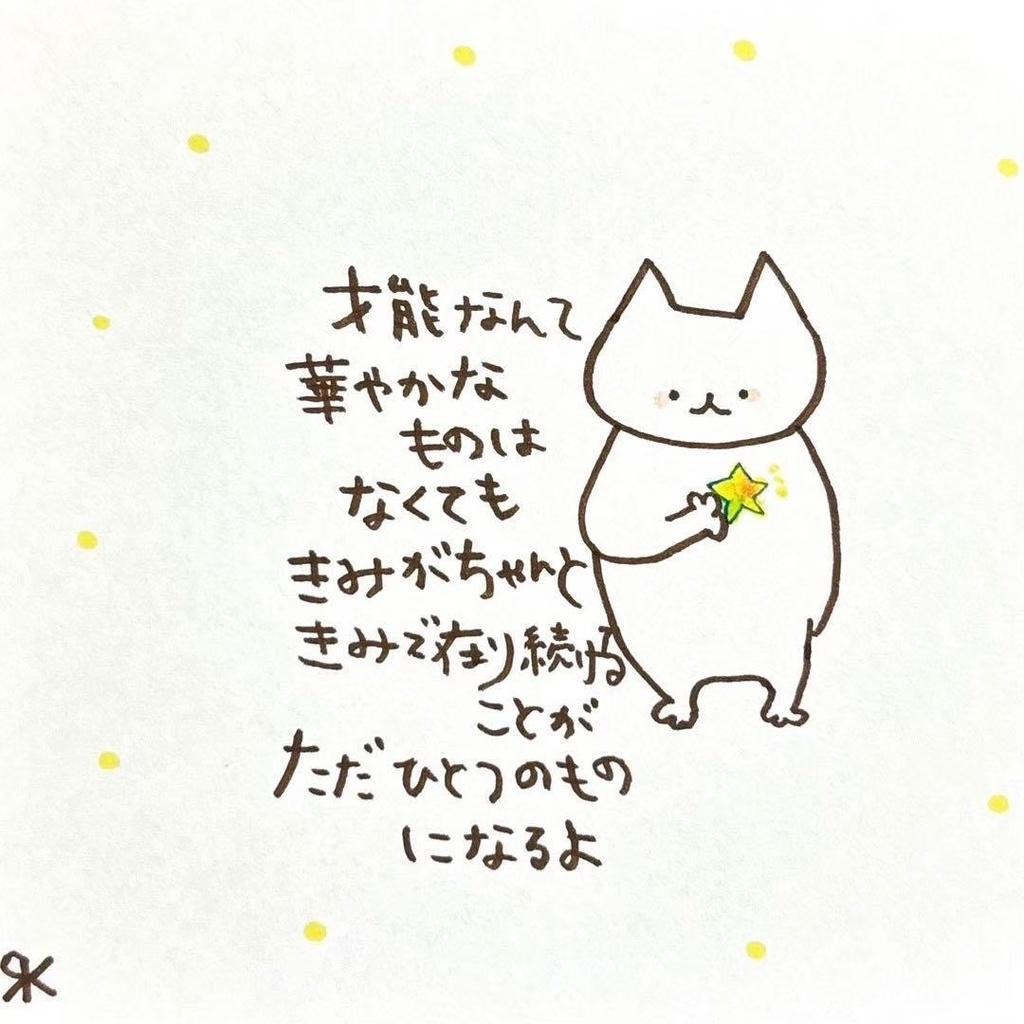 才能なんて
華やかな
ものは
なくても
きみがちゃんと
きみで在り続ける
ことが
ただひとつのもの
になるよ